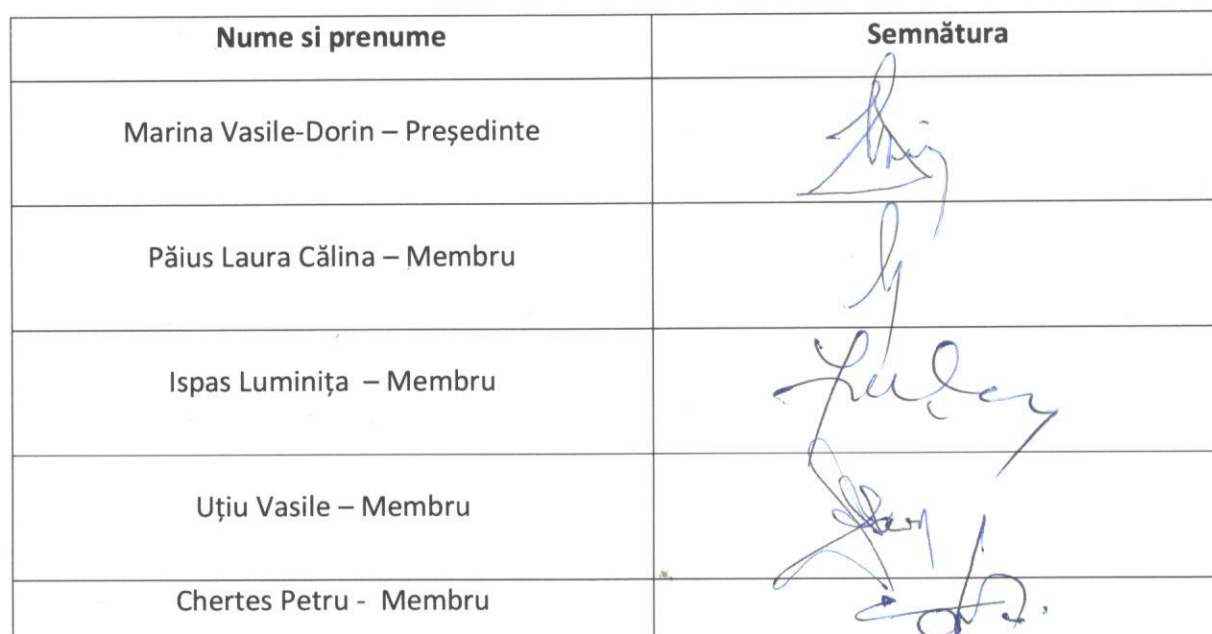 Nume si prenume
Semnătura
Marina Vasile-Dorin – Președinte
Păius Laura Călina – Membru
Ispas Luminița – Membru
Uțiu Vasile – Membru
Chertes Petru - Membru